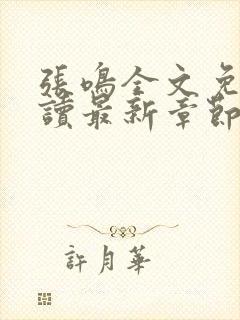 張鳴全文免
讀最新章節
許月華